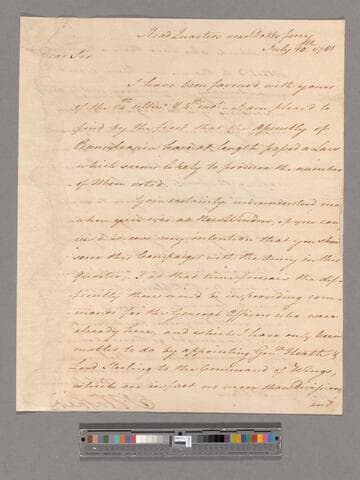 Head Quarters near Dobbs ferry
July 10th 1781
Dear Sir
I have been favoured with yours
of the ulto. & 5th inst. I am pleas'd to
find by the first that the Assembly of
Pennsylvania have at length passed a Law
which seems likely to produce the number
of Men voted.
You certainly misunderstood me
when you were at New Windsor, if you con-
ceiv'd it was my intention that you should
serve this Campaign with the Army in this
quarter; I at that time
there would be in providing com-
mands for the General Officers who were
already here, and which I have only been
enabled to do by appointing Genl. Heath &
Lord Stirling to the Command of Wings,
which are in fact no more than Divisions,
and